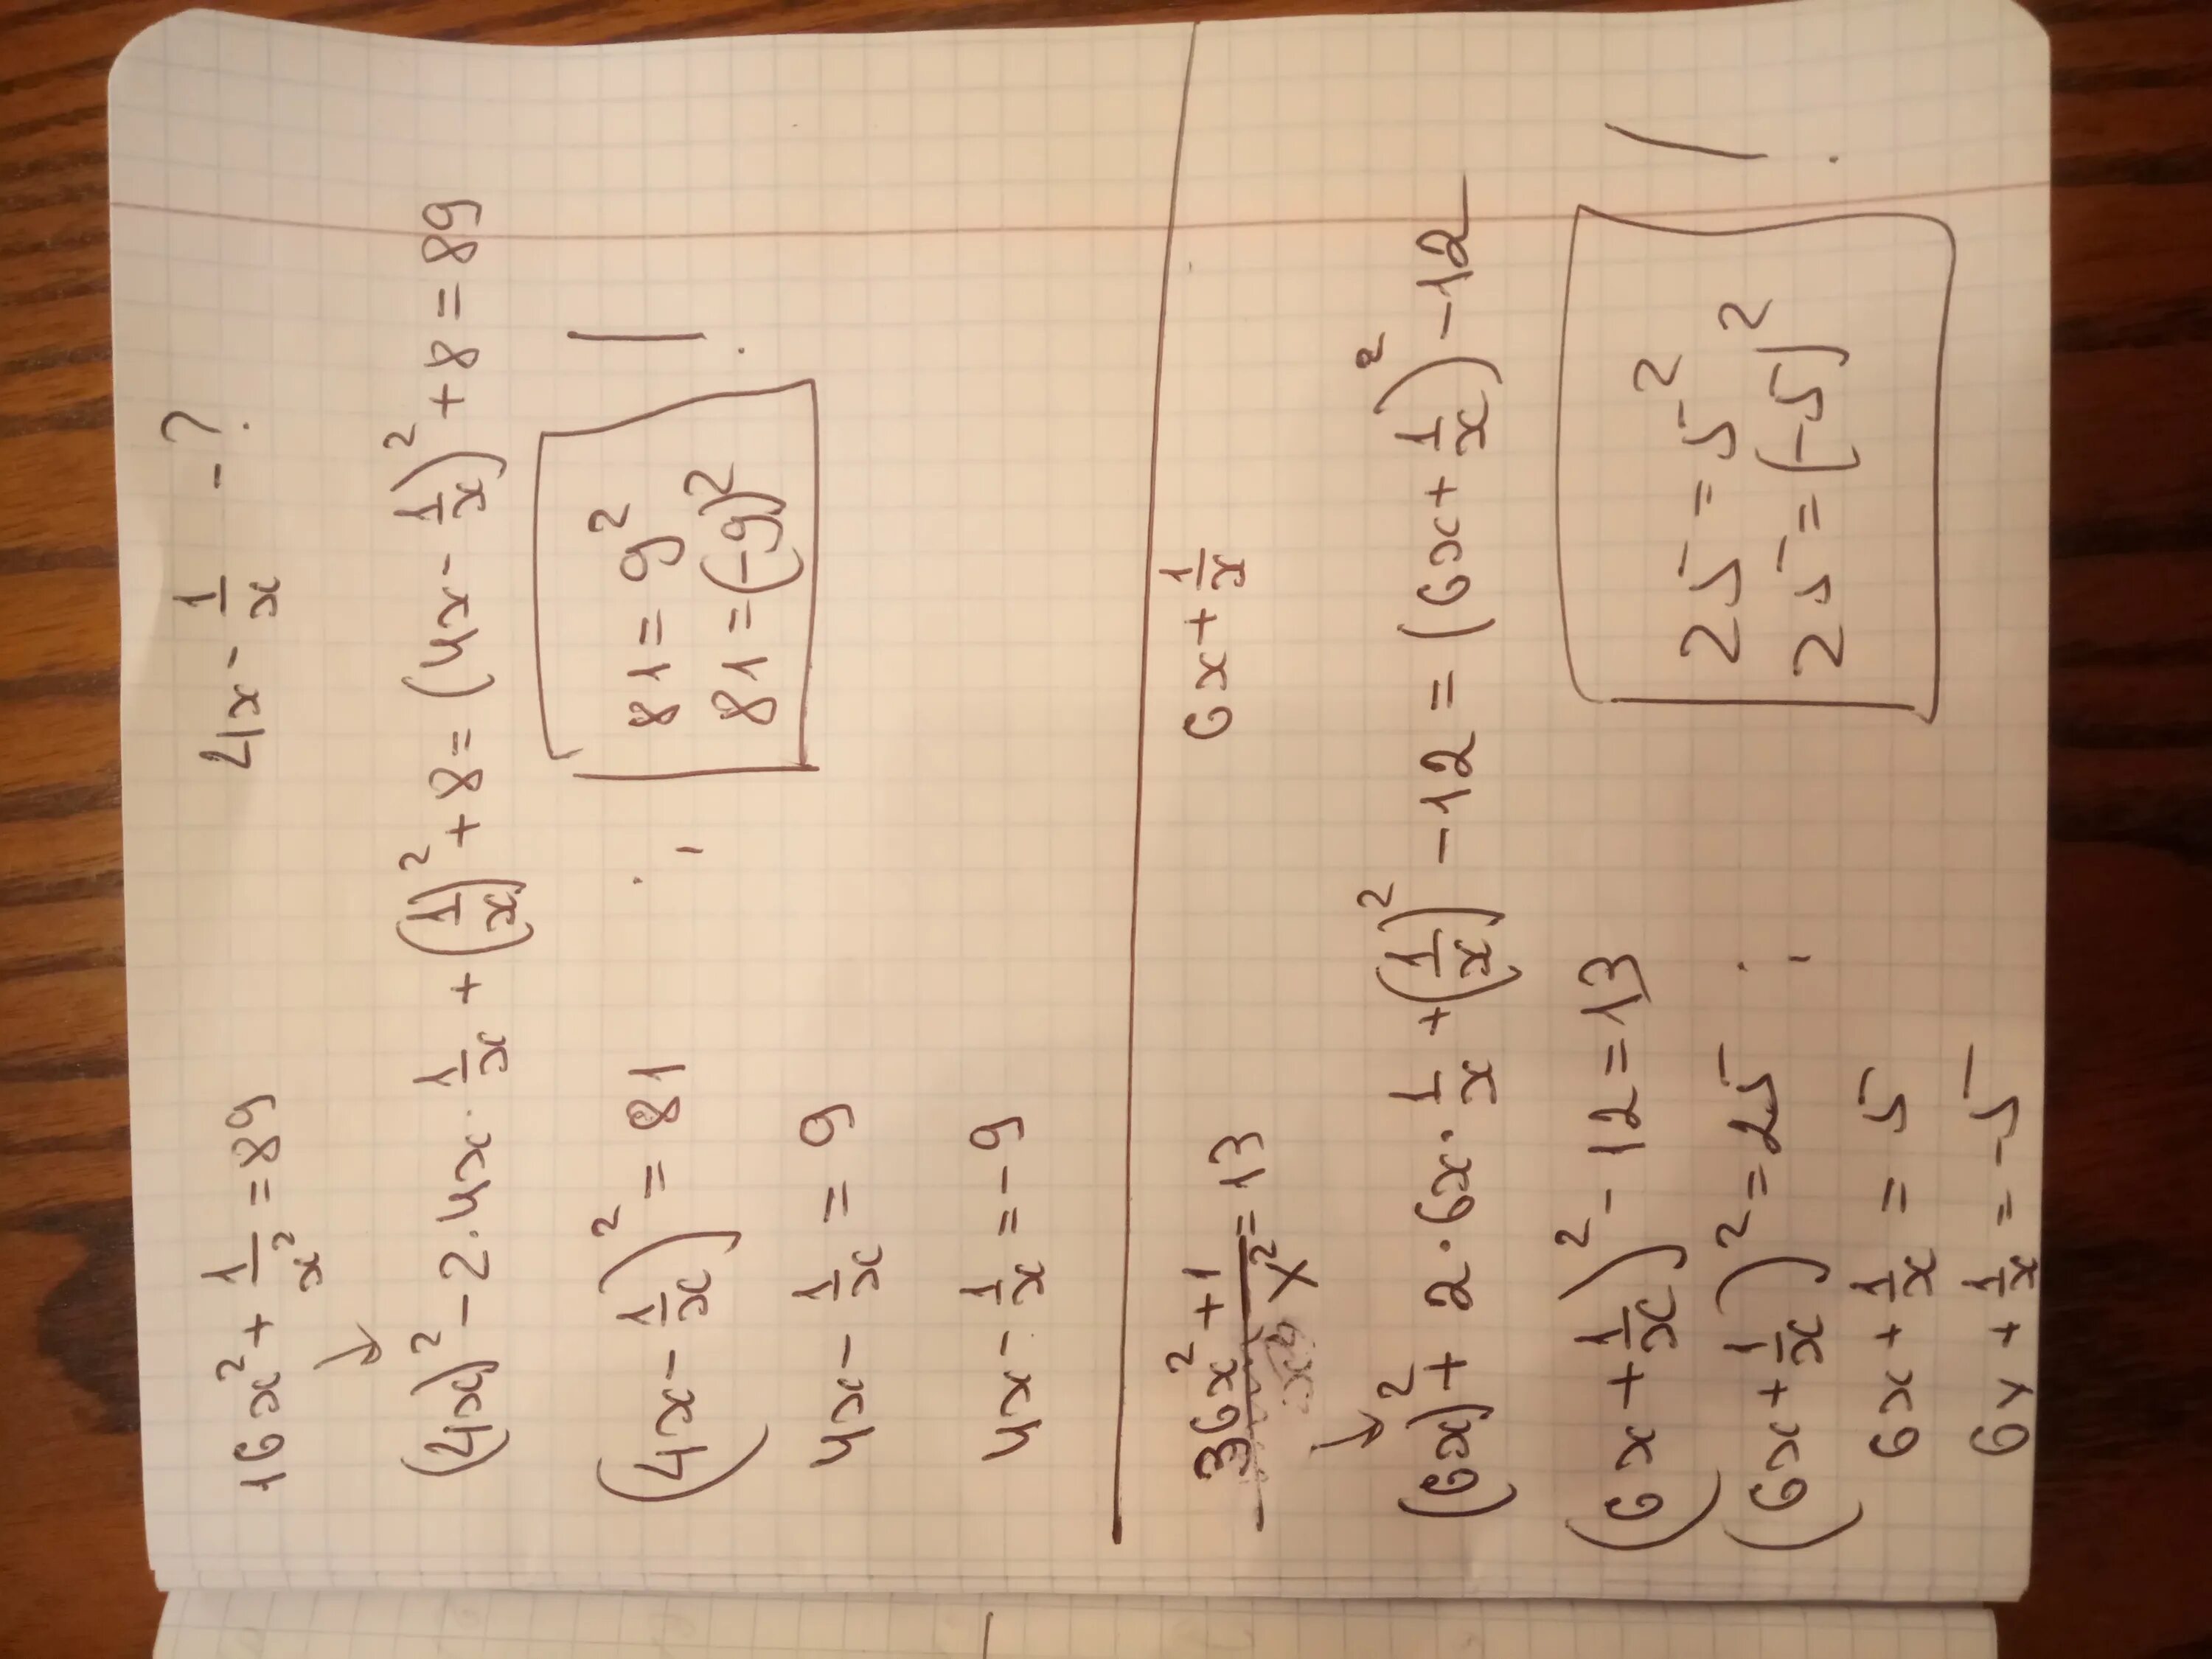 16x² + 1/x² = 89 4x - 1/x - ?
↓
(4x)² - 2·4x·1/x + (1/x)² + 8 = (4x - 1/x)² + 8 = 89
(4x - 1/x)² = 81 ; 81 = 9² !
81 = (-9)²
4x - 1/x = 9
4x - 1/x = -9
36x² + 1/x² = 13 6x + 1/x
↓
(6x)² + 2·6x·1/x + (1/x)² - 12 = (6x + 1/x)² - 12
(6x + 1/x)² - 12 = 13
(6x + 1/x)² = 25 ; 25 = 5² !
25 = (-5)²
6x + 1/x = 5
6x + 1/x = -5